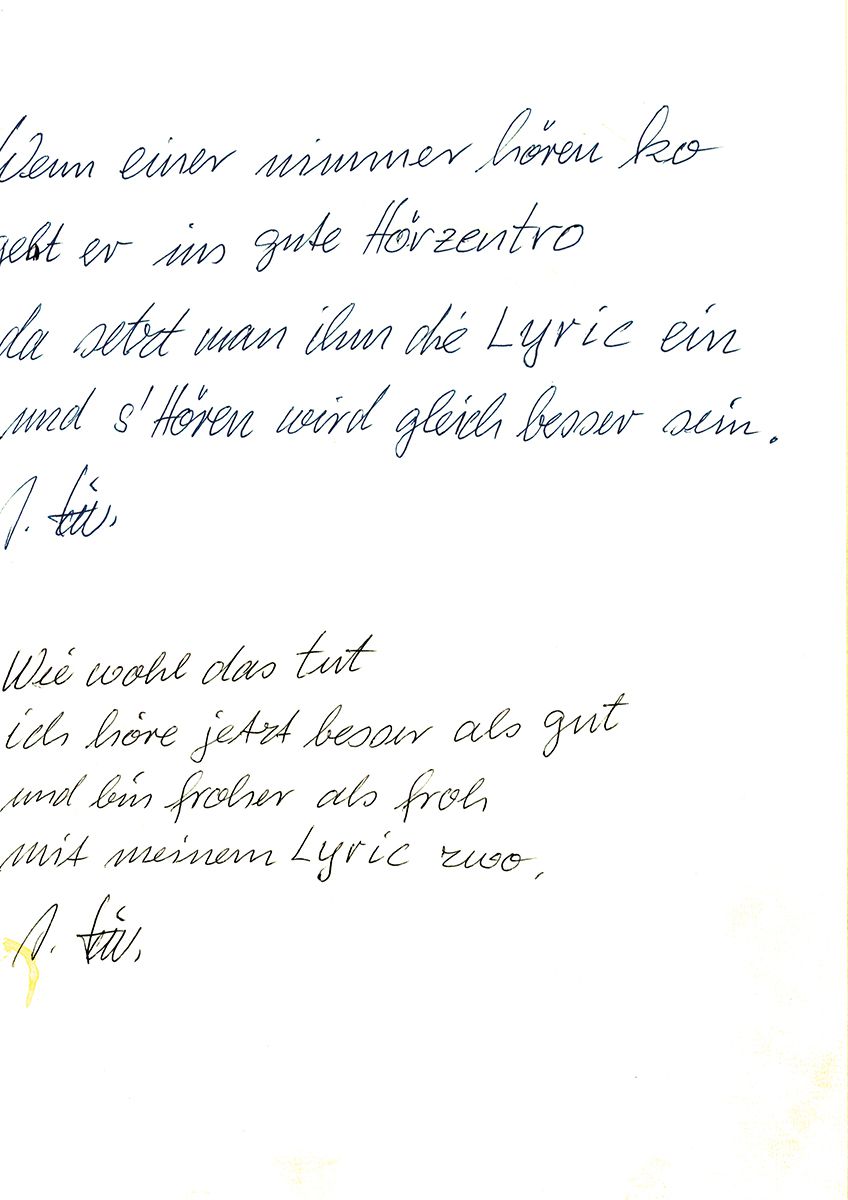 Wenn einer nimmer hören ko
geht er ins gute Hörzentro
da setzt man ihm die Lyric ein
und s' Hören wird gleich besser sein.
Wie wohl das tut
ich höre jetzt besser als gut
und bin froher als froh
mit meinem Lyric zwo.